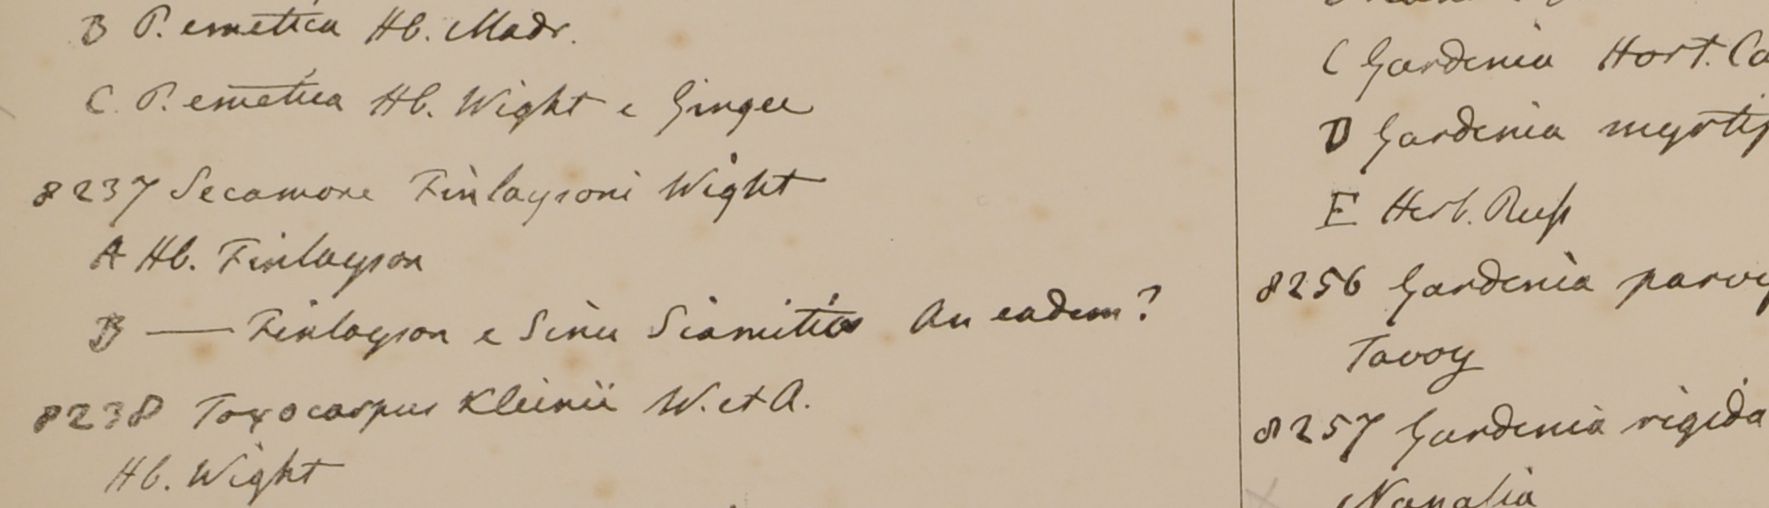 B P. emetica Hb. Madr.
C. P. emetica Hb. Wight e Gingee
8237 Secamone Finlaysoni Wight
A Hb. Finlayson
B — Finlayson e Sinu Siamitico An eadem?
8238 Toxocarpus Kleinii W. et A.
Hb. Wight
C Gardenia Hort. Ca
D Gardenia myrtif
E Herb. Russ
8256 Gardenia parvif
Tavoy
8257 Gardenia rigida